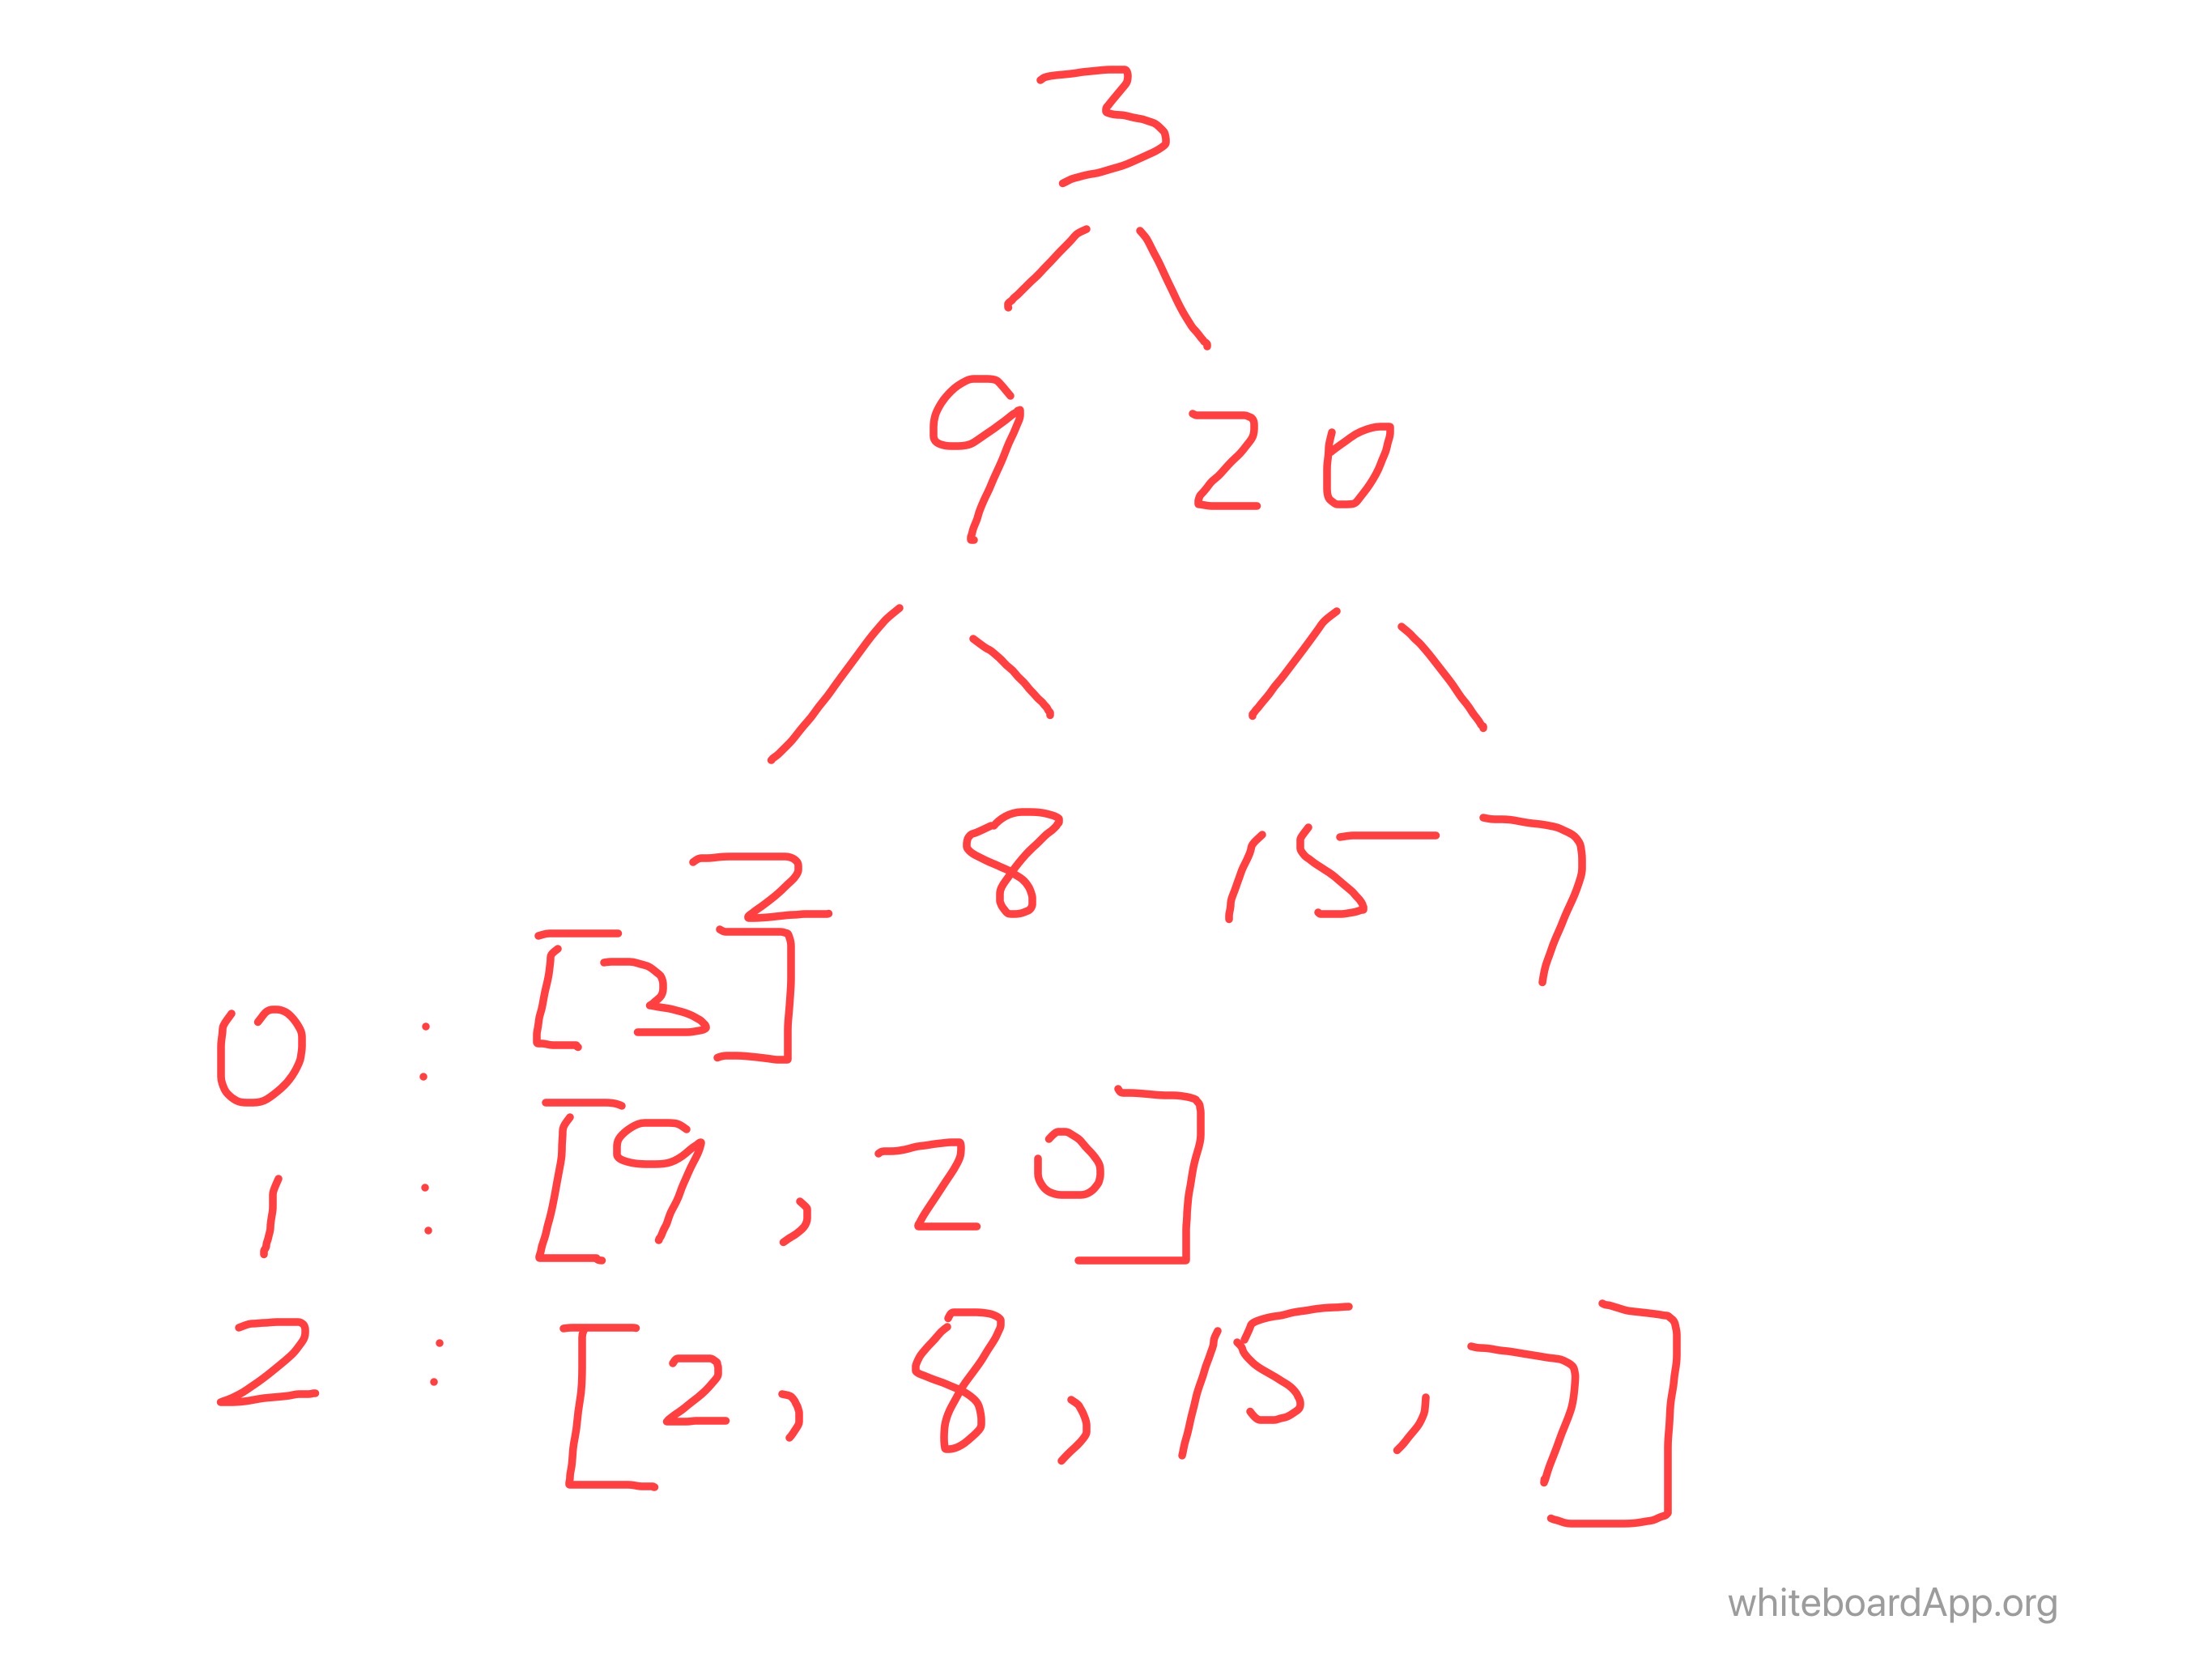 3
9 20
2 8 15 7
0 : [3]
1 : [9, 20]
2 : [2, 8, 15, 7]
whiteboardApp.org